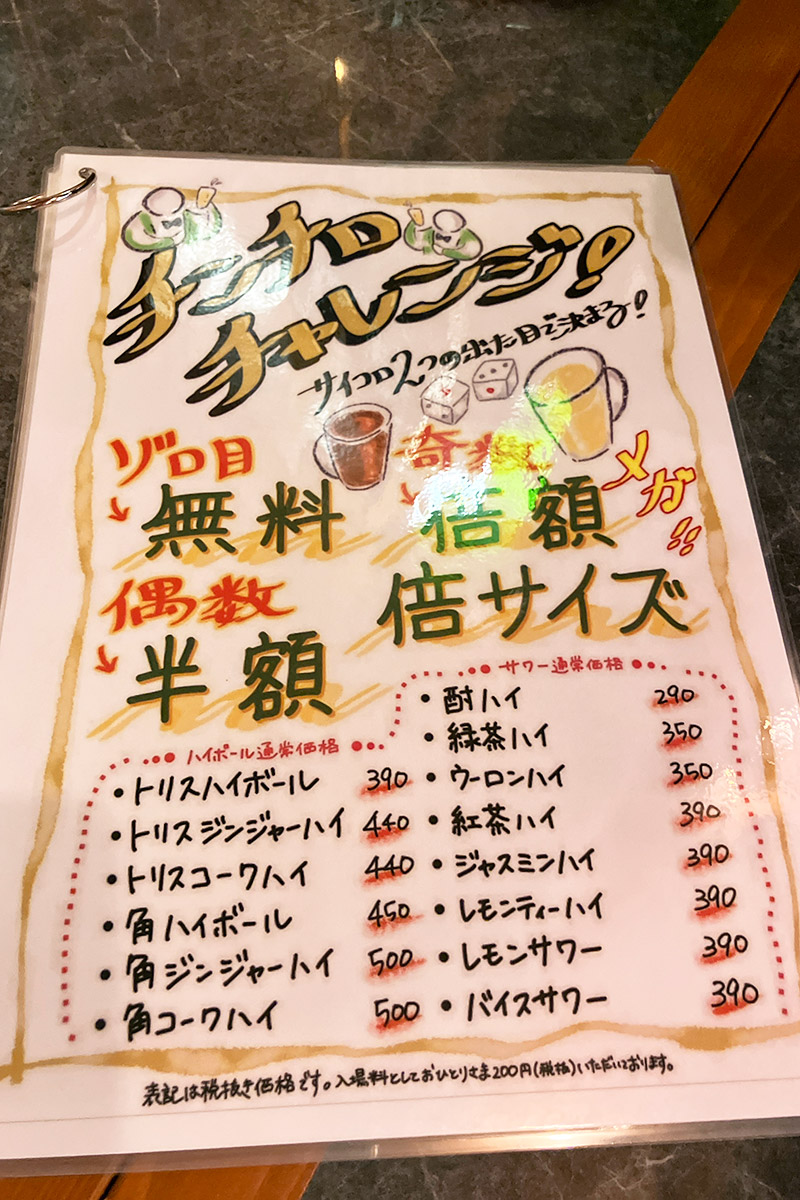 チンチロ
チャレンジ!
サイコロ2つの出た目で決まる!
ゾロ目
無料
偶数
半額
奇数
倍額
メガ!!
倍サイズ
ハイボール通常価格
・トリスハイボール 390
・トリスジンジャーハイ 440
・トリスコークハイ 440
・角ハイボール 450
・角ジンジャーハイ 500
・角コークハイ 500
サワー通常価格
・酎ハイ 290
・緑茶ハイ 350
・ウーロンハイ 350
・紅茶ハイ 390
・ジャスミンハイ 390
・レモンティーハイ 390
・レモンサワー 390
・バイスサワー 390
表記は税抜き価格です。入場料としておひとりさま200円(税抜)いただいております。